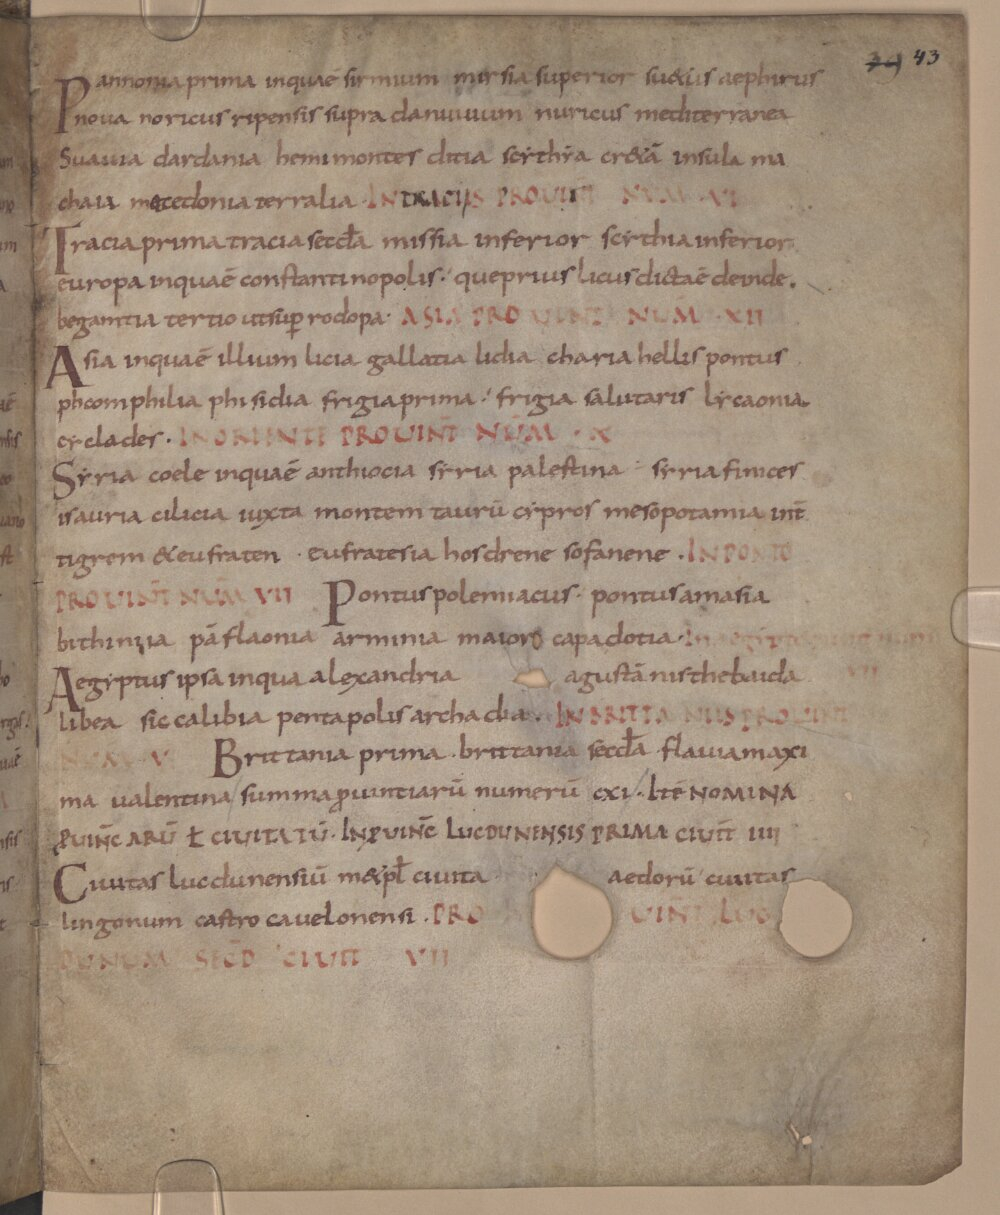 39 43
Pannonia prima inquaē sirmium misia superior su&us aephirus
noua noricus ripensis supra danuuium nuricus mediterranea
Suauia dardania hemimontes ditia scẏthẏa cr&ā insula ma
chaia macedonia terralia · IN TRACIIS PROUINT NUM · VI
Tracia prima tracia secd̄a missia inferior scẏthia inferior
europa inquaē constantinopolis · que prius licus dictaē deinde ·
begantia tertio utsup̄ rodopa · ASIA PROUINT NUM̄ · XII
Asia inquaē illium licia gallatia lidia charia hellis pontus
phcomphilia phisidia frigia prima · frigia salutaris lẏcaonia
cẏclades · IN ORIENTE PROUINT̄ NUM̄ · X
Sẏria coele inquaē anthiocia sẏria palestina · sẏria finices
isauria cilicia iuxta montem taurū cẏpros mesopotamia int̄
tigrem & eufraten · eufratesia hosdrene sofanene · IN PONTO
PROUINT̄ NUM̄ VII Pontus polemiacus · pontus amasia
bithinia pāflaonia arminia maior capadotia · In aegipto
Aegẏptus ipsa inqua alexandria agustā nis thebaida VII
libea sic calibia pentapolis archadia · IN BRITTANIIS PROUINT
NUM · V Brittania prima · brittania secd̄a · flauia maxi
ma ualentina summa ꝓuintiarū numerū cxi · ItĒ NOMINA
ꝓUINC̄ARŪ ł CIUITATŪ · IN ꝓUINC̄ LUCDUNENSIS PRIMA CIUIT̄ IIII
Ciuitas lucdunensiū m&ꝓł ciuita aedorū ciuitas
lingonum castro cauelonensi · PRO UINT̄ LUG
DUNUM SECD̄ CIUIT VII